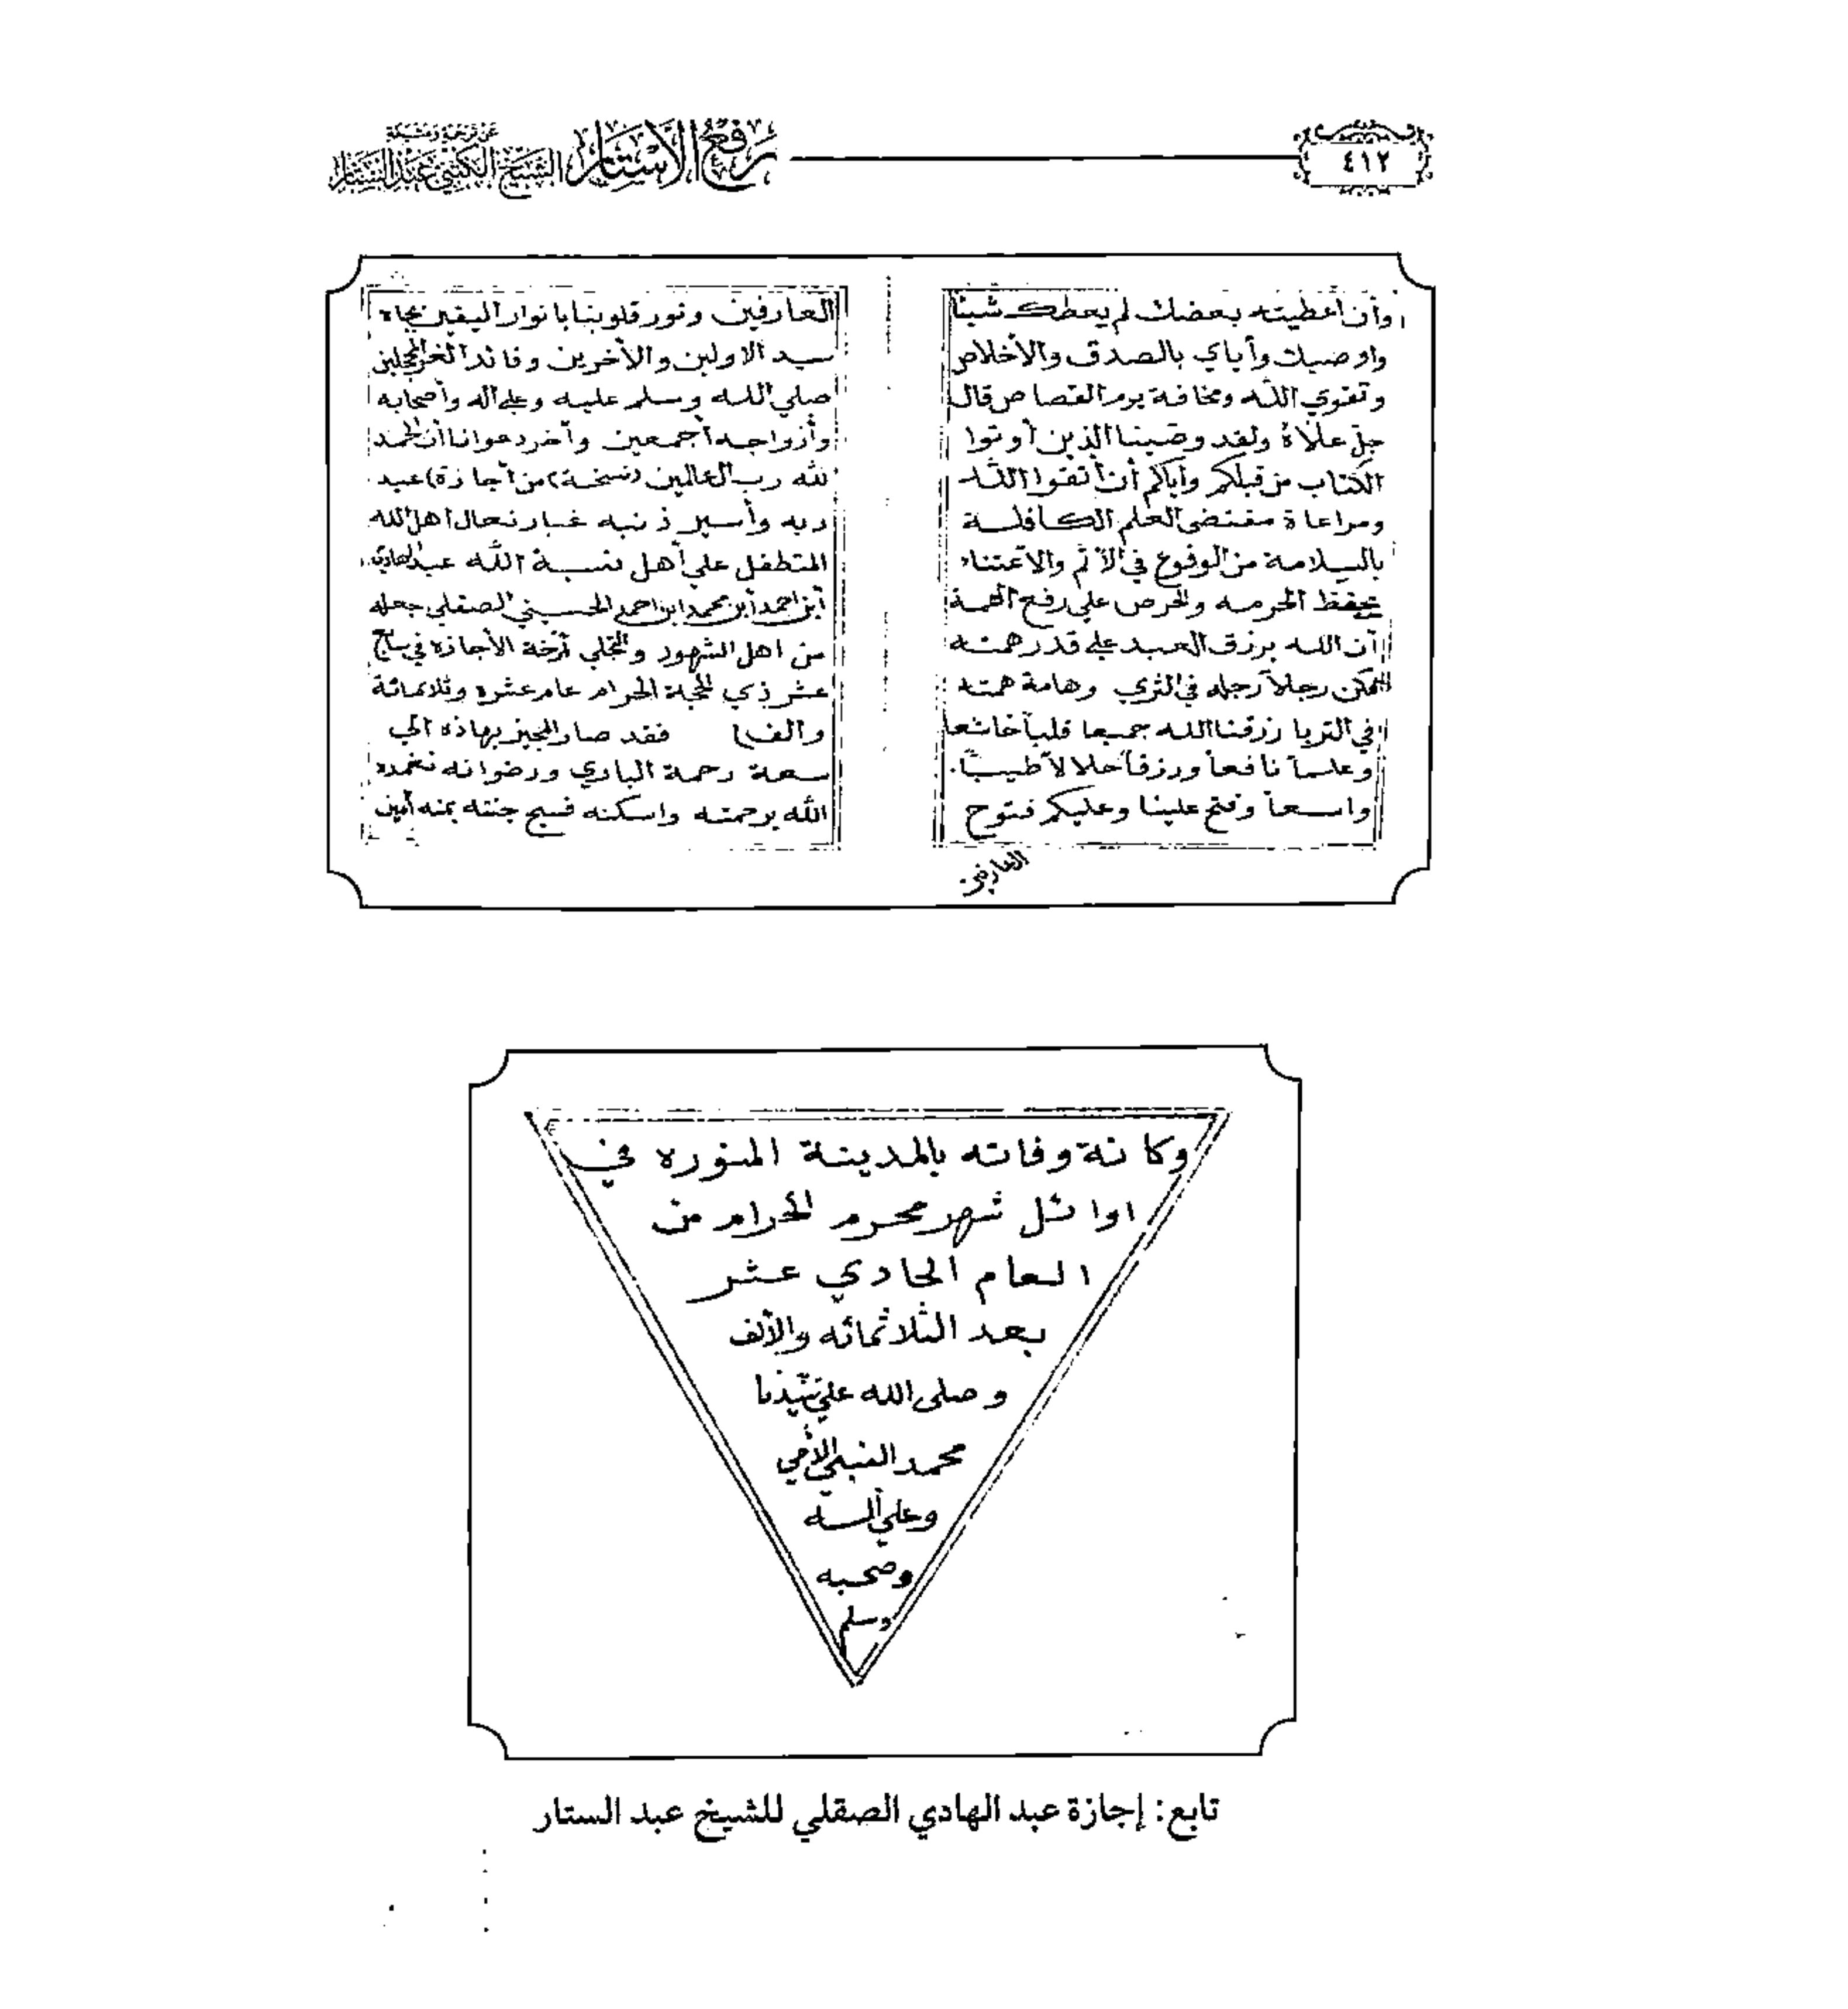 ٤١٢
رفع الأستار
الشيخ الكتبي عبد الستار
وأن أعطيته بعضك لم يعطك شيئا
واوصيك وأياي بالصدق والأخلاص
وتقوي الله ومخافة يوم القصاص قال
جل علاه ولقد وصينا الذين أوتوا
الكتاب من قبلكم وأياكم أن أتقوا الله
ومراعاة مقتضى العلم الكافلة
بالسلامة من الوقوع في الأثم والاعتناء
بحفظ الحرمه والحرص علي رفع الهمة
أن الله يرزق العبد علي قدر همته
فكن رجلاً رجله في الثري وهامة همته
في الثريا رزقنا الله جميعا قلباً خاشعا
وعلماً نافعاً ورزقاً حلالا طيباً
واسعاً وفتح علينا وعليكم فتوح
العارفين
العارفين ونور قلوبنا بانوار اليقين بجاه
سيد الاولين والأخرين وقائد الغر المحجلين
صلي الله وسلم عليه وعلي أله وأصحابه
وأزواجه أجمعين وأخر دعوانا أن الحمد
لله رب العالمين (نسخة) من أجازة) عبد
ربه وأسير ذنبه غبار نعال اهل الله
المتطفل علي أهل نسبة الله عبد الهادي
أبن احمد أبن محمد ابن احمد الحسيني الصقلي جعله
من اهل الشهود والتجلي أرخة الأجازة في سابع
عشر ذي الحجة الحرام عام عشره وثلاثمائة
والف) فقد صار المجيز بهاذه الي
سعة رحمة الباري ورضوانه تغمده
الله برحمته واسكنه فسيح جنته بمنه أمين
وكانة وفاته بالمدينة المنوره في
اوائل شهر محرم الحرام من
العام الحادي عشر
بعد الثلاثمائه والألف
وصلى الله علي سيدنا
محمد النبي الأمي
وعلي أله
وصحبه
وسلم
تابع: إجازة عبد الهادي الصقلي للشيخ عبد الستار